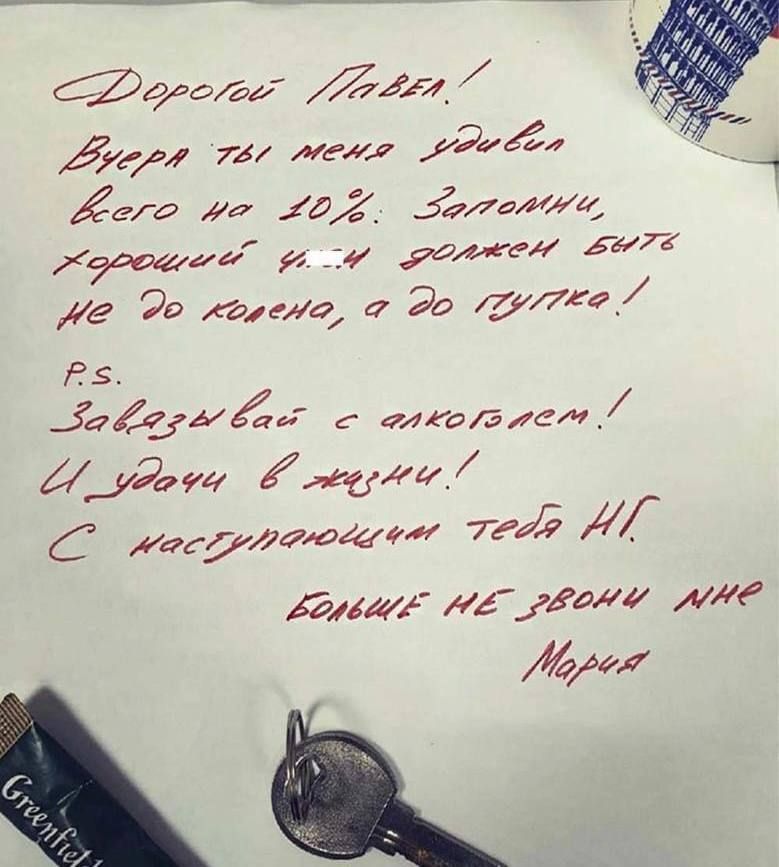 Дорогой Павел!
Вчера ты меня удивил
всего на 10%. Запомни,
хороший должен быть
не до колена, а до пупка!
P.S.
Завязывай с алкоголем!
И удачи в жизни!
С наступающим тебя НГ.
Больше не звони мне
Мария
Greenfield